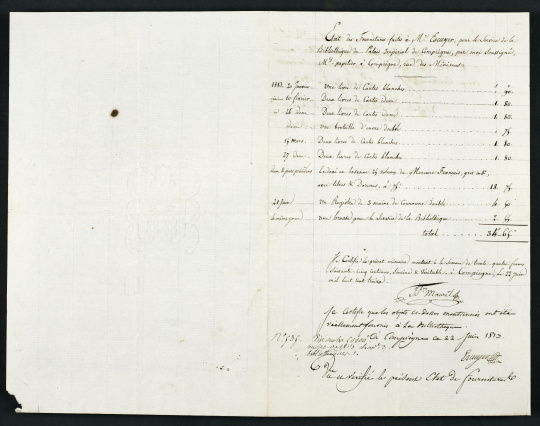 Etat des Fournitures faites à Mr. Escuyer, pour le Service de la
Bibliothèque du Palais Impérial de Compiègne, par moi Soussigné,
Md. papetier à Compiègne, rue des Minimes
1813. 20 Janvier... une livre de Cartes blanches 1. 90.
10 février... Deux livres de Cartes idem 1. 80.
26 idem... Deux livres de Cartes idem 1. 80.
idem... une bouteille d'encre double 1. 75.
14 Mars... Deux livres de Cartes blanches 1. 80
27 idem... Deux livres de Cartes blanches 1. 80.
24 volumes du Mercure Français
avec titres 18. 75.
un Registre de 3 mains de Couronne double 4. 50
une brosse pour le Service de la Bibliothèque
total 34. 65.
Je Certifie le présent mémoire montant à la Somme de trente quatre francs
Soixante cinq Centimes, Sincère & Véritable, à Compiègne, le 22 Juin
mil huit cent treize.
Je Certifie que les objets ci-dessus mentionnés ont été
réellement fournis à la Bibliothèque
à Compiègne ce 22 Juin 1813.
Escuyer
Vu et vérifié le présent Etat de fournitures